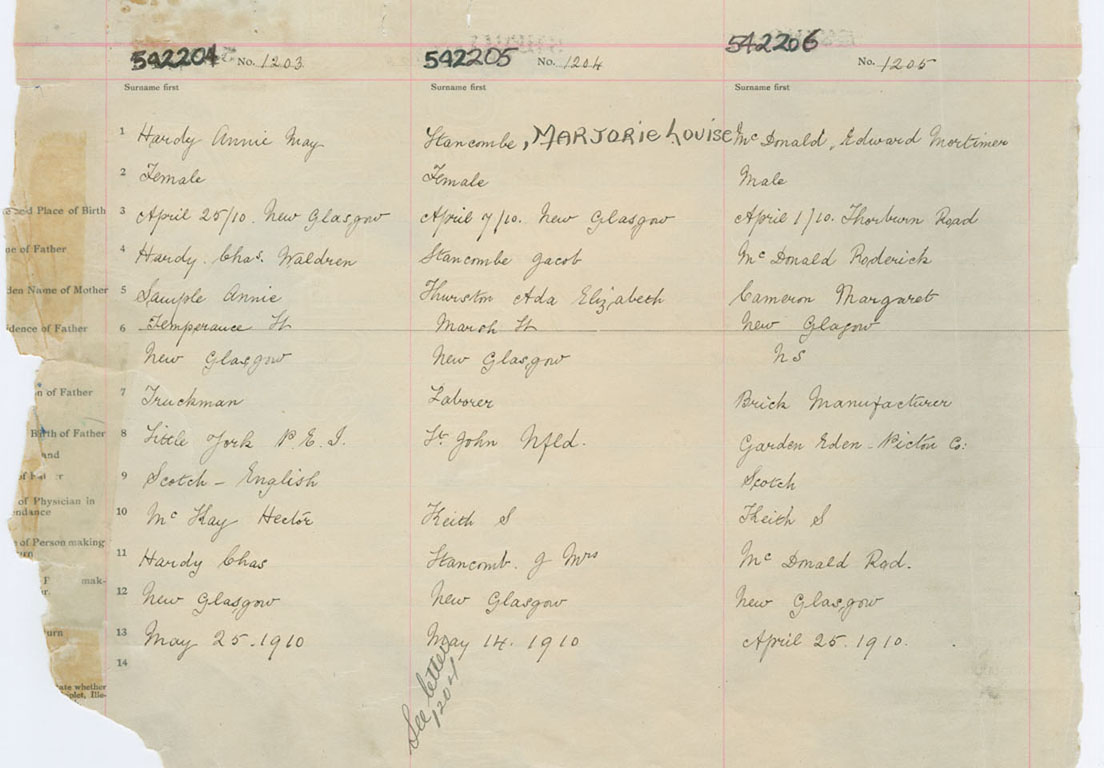 542204 No. 1203 542205 No. 1204 542206 No. 1205
Surname first Surname first Surname first
1 Hardy Annie May Stancombe, MARJORIE LOUISE Mc Donald, Edward Mortimer
2 Female Female Male
and Place of Birth 3 April 25/10. New Glasgow April 7/10. New Glasgow April 1/10. Thorburn Road
of Father 4 Hardy. Chas. Waldren Stancombe Jacob Mc Donald Roderick
Name of Mother 5 Sample Annie Thurston Ada Elizabeth Cameron Margaret
of Father 6 Temperance St Marsh St New Glagow
New Glasgow New Glasgow N S
of Father 7 Truckman Laborer Brick Manufacturer
Birth of Father 8 Little York P. E. I. St. John Nfld. Garden Eden - Pictou Co:
and
9 Scotch - English Scotch
of Physician in
10 Mc Kay Hector Keith S Keith S
of Person making
11 Hardy Chas Stancomb. J Mrs Mc Donald Rod.
mak-
12 New Glasgow New Glasgow New Glasgow
13 May 25. 1910 May 14. 1910 April 25. 1910.
14
See letter
1204
whether